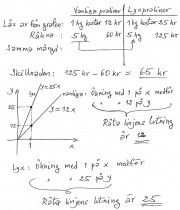 Vanliga praliner | Lyxpraliner
Läs av från grafen: 1 kg kostar 12 kr | 1 kg kostar 25 kr
Räkna: 5 kg 60 kr | 5 kg 125 kr
Samma mängd
Skillnaden: 125 kr - 60 kr = 65 kr
y y=25x
25 y=12x
12
1 x
Vanliga: Ökning med 1 på x medför
" " 12 på y
Räta linjens lutning
är 12
Lyx: Ökning med 1 på x medför
" " 25 på y
Räta linjens lutning
är 25